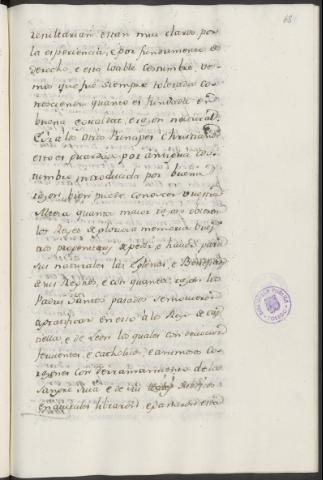 68
resultarian estan muy claros por
la experiencia, e por fundamento de
derecho, e esta loable costumbre, ve-
mos que fué siempre tolerada co-
nosciendo quanto es fundada en
buena equidad e razon natural.
E si a los otros Principes Christianos
esto es guardado por antigua cos-
tumbre introducida por buena
razon, bien puede conocer vuestra
Alteza quanta maior razon obieron
los Reyes de gloriosa memoria vues-
tros progenitores de pedir e haber para
sus naturales las Iglesias, e Beneficios
de sus Reynos, e con quanta razon los
Padres Santos pasados se movieron
a gratificar en esto a los Reyes de Cas-
tilla, e de Leon los quales con devocion
ferviente, e catholica, e animosos co-
razones con derramamiento de la
Sangre suia e de sus
en quistas libraron, e ganaron esta